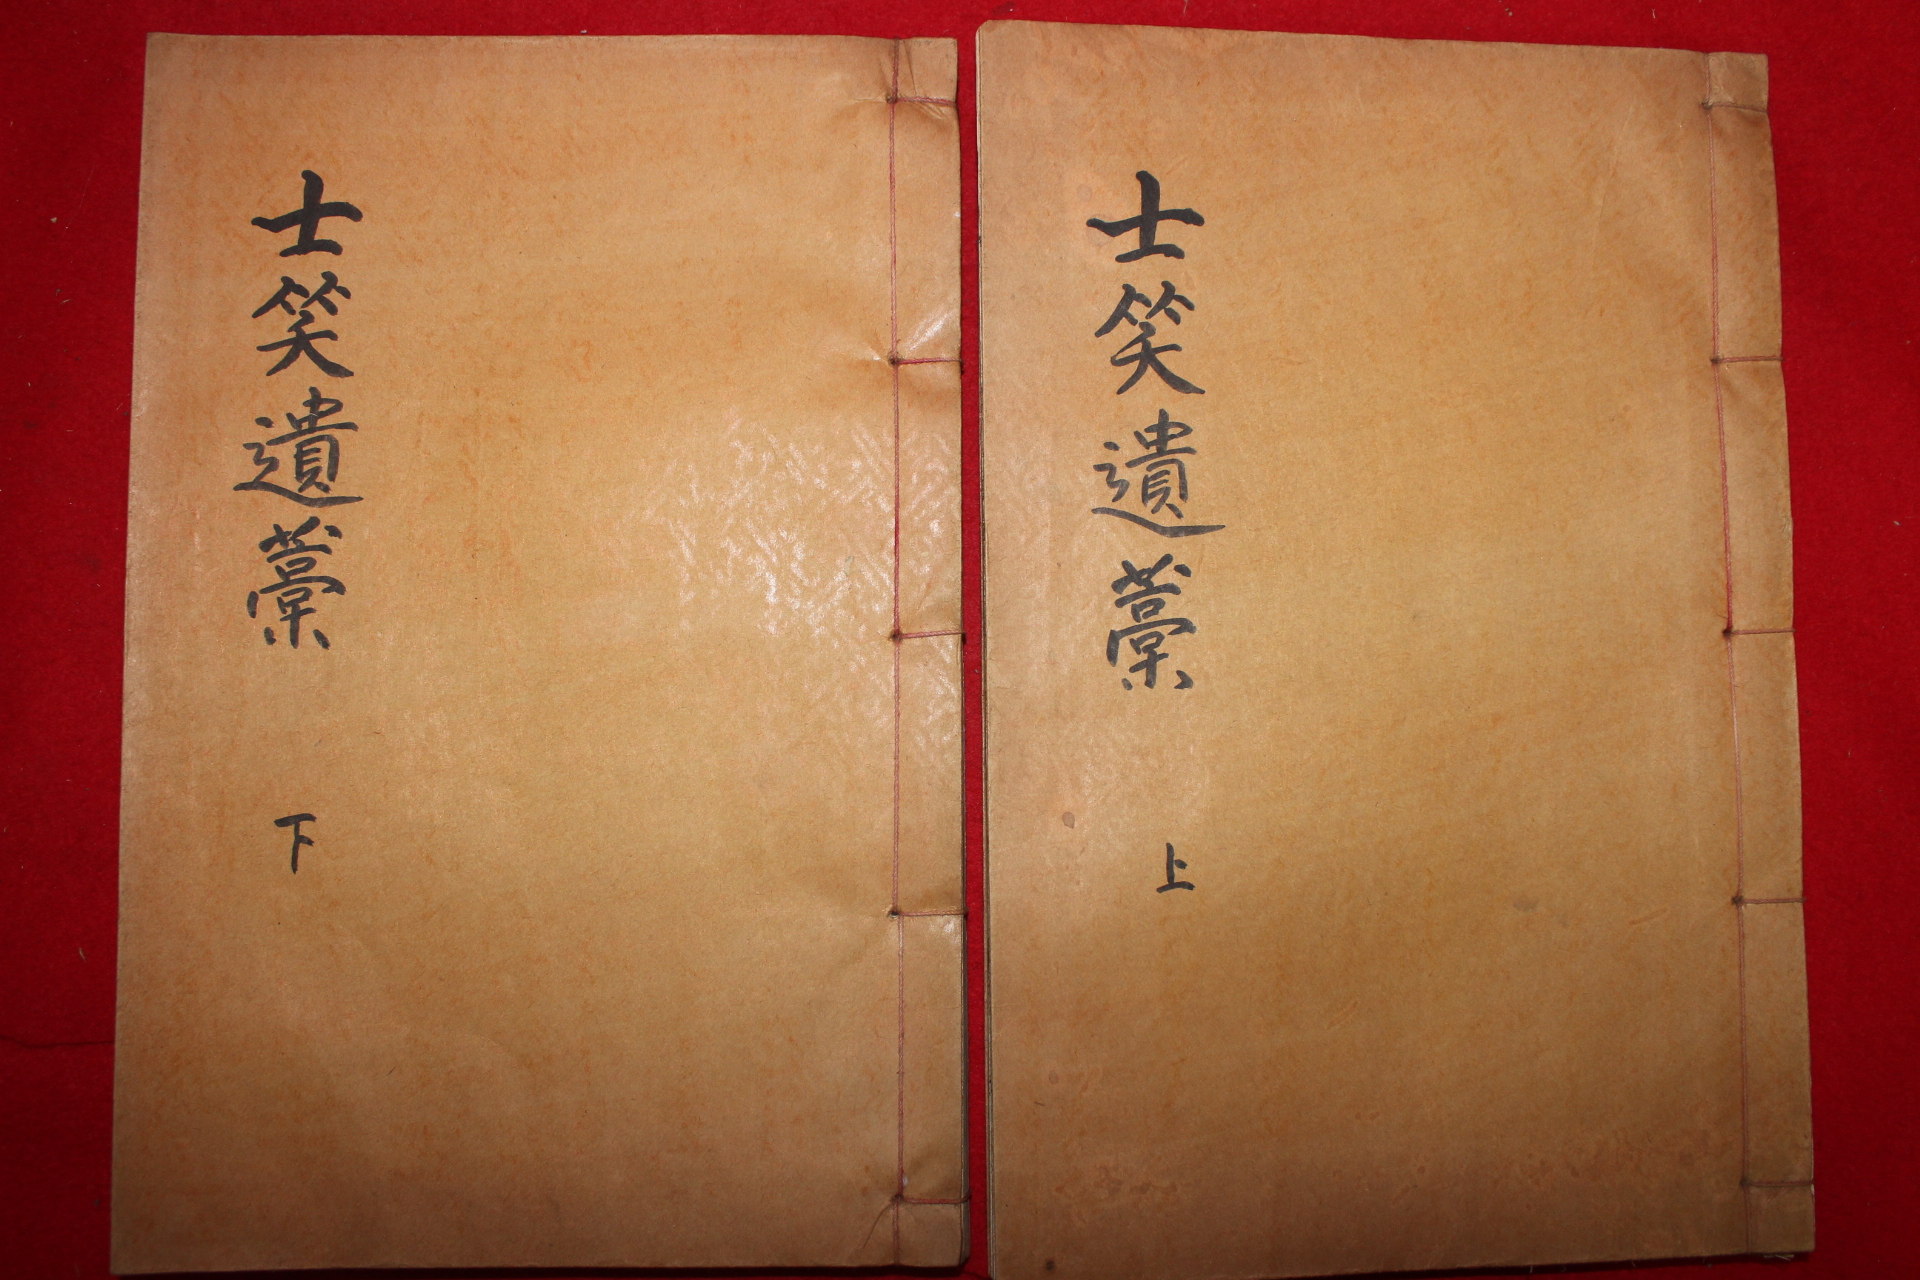 士笑遺藁 上
士笑遺藁 下